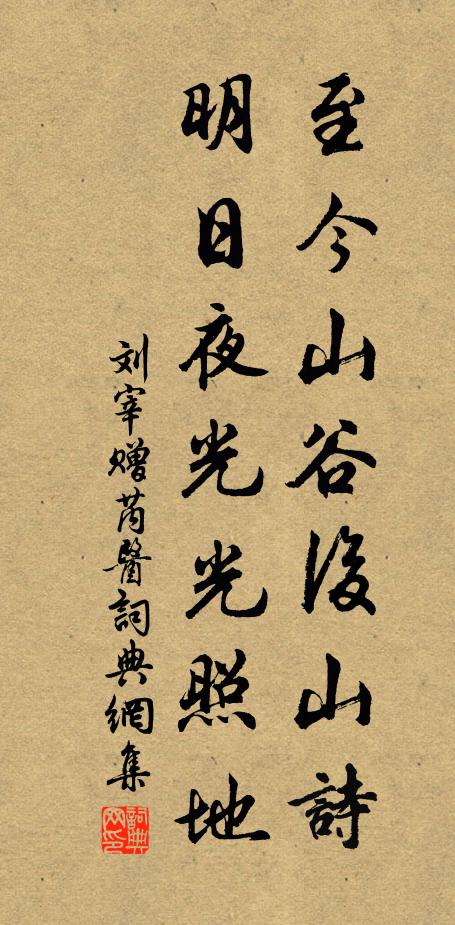 至今山谷後山詩
明日夜光光照地
刘宰赠芮醫詞典網集
詞典网印